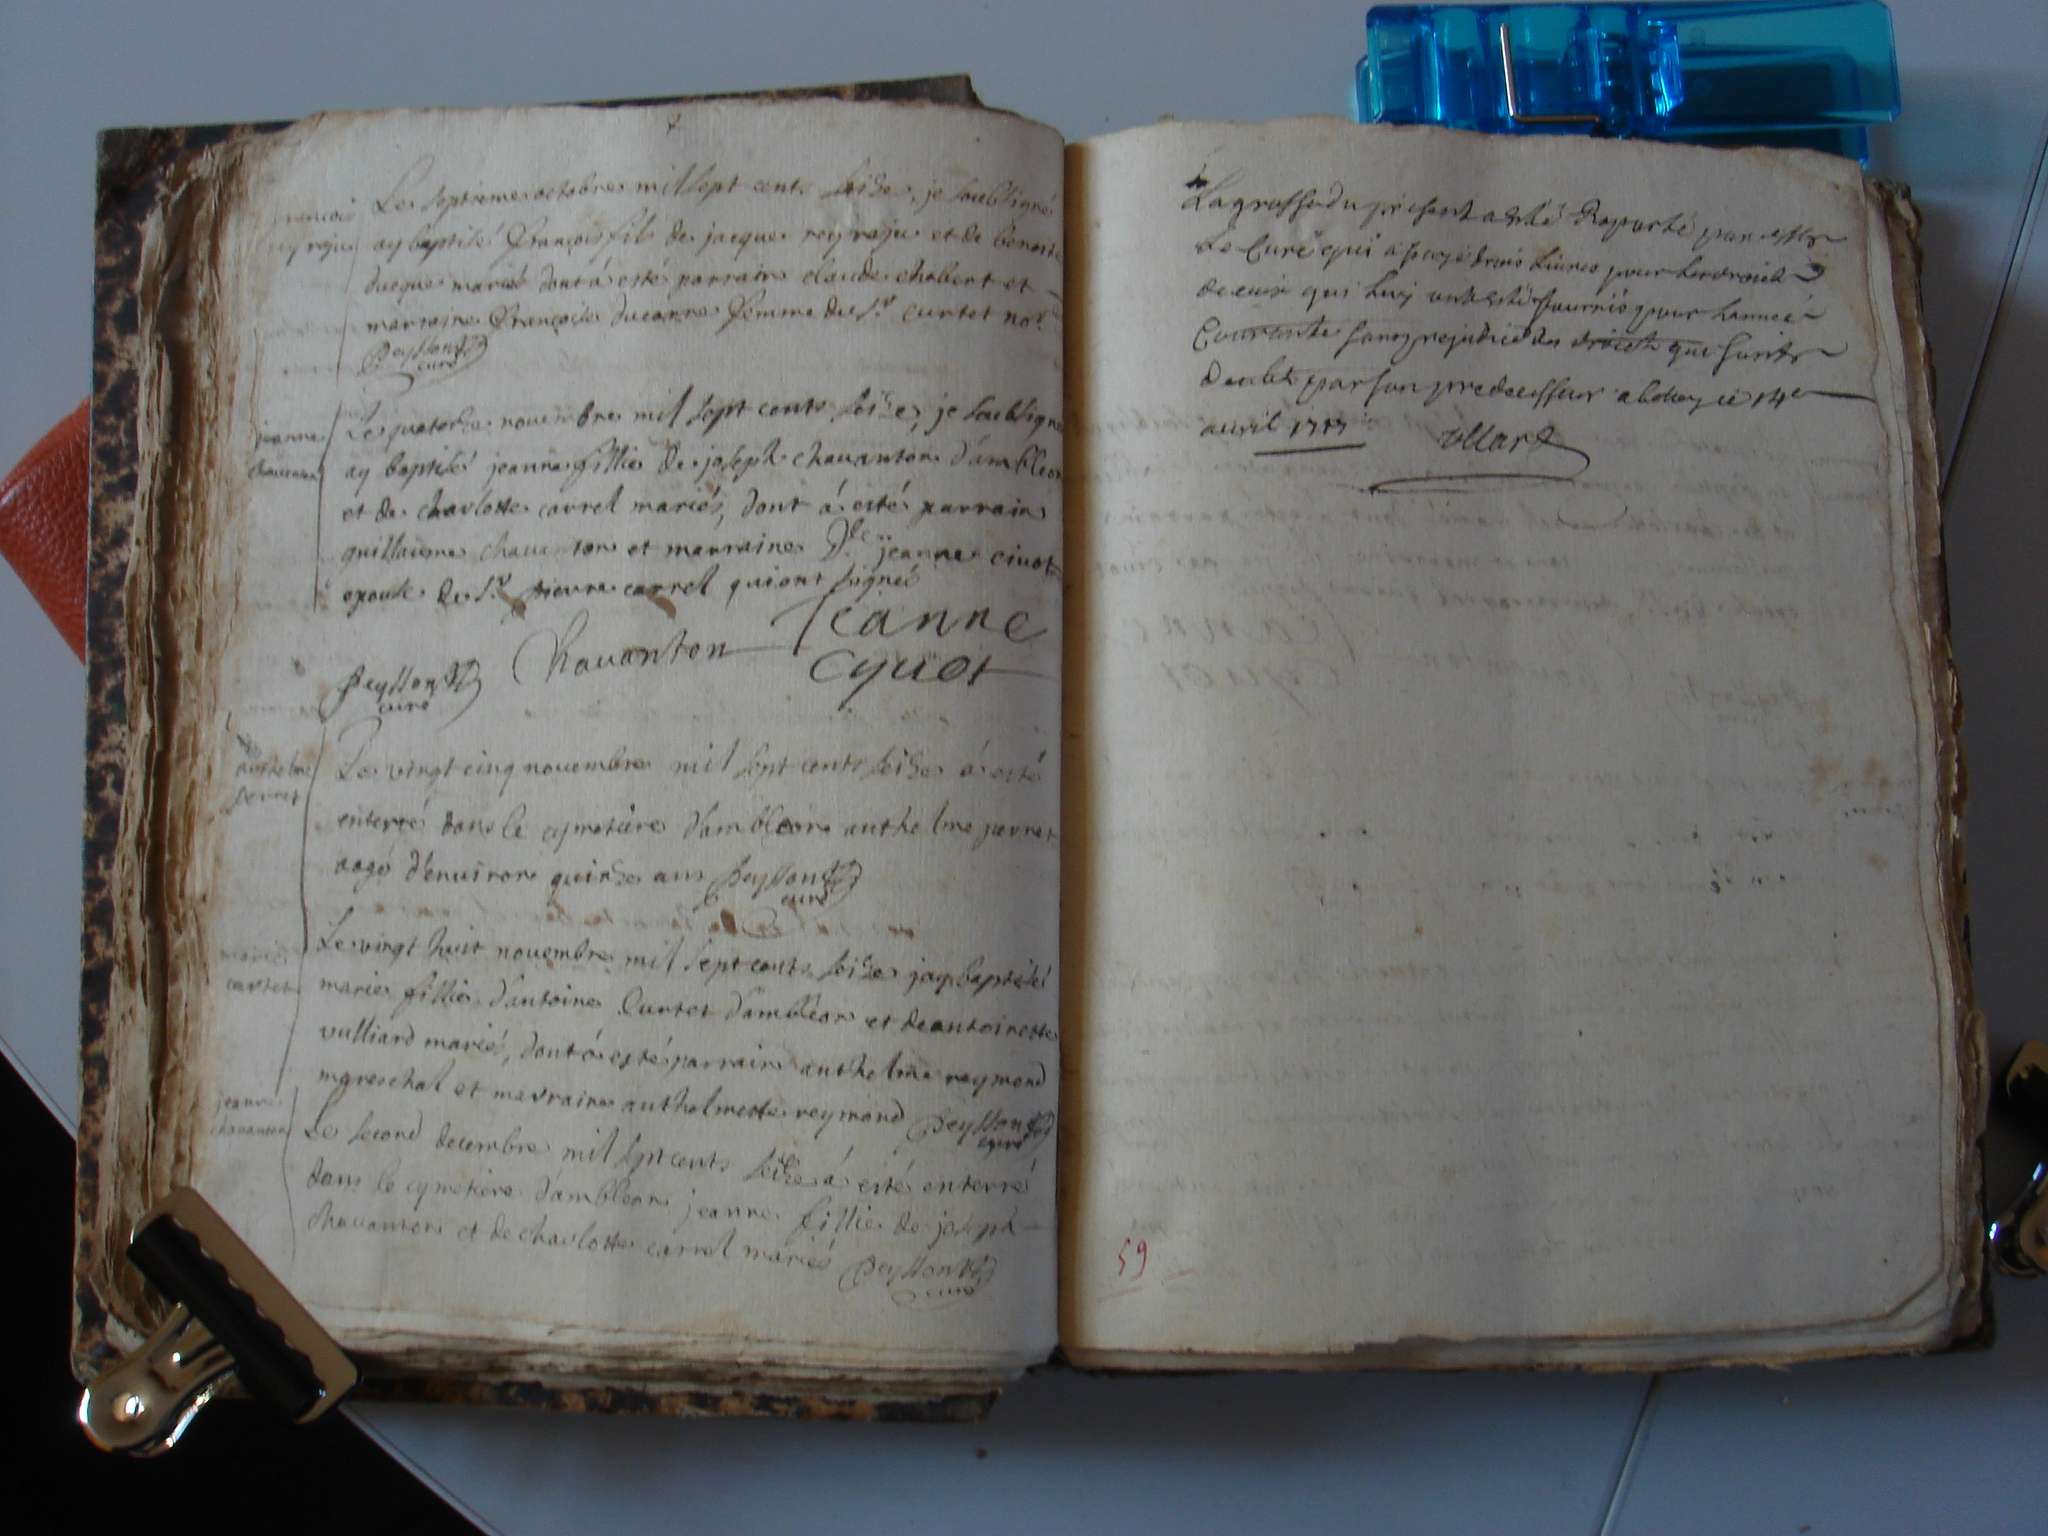 françois
reyraju
Le septieme octobre mil sept cents seize, je soubsigné
ay baptisé françois fils de jacque reyraju et de benoite
ducque mariés dont á esté parrain claude chabert et
marraine françoise ducarre femme du sr. curtet nore
Peysson
curé
jeanne
chavanton
Le quatorze novembre mil sept cents seize, je soubsigné
ay baptisé jeanne fillie de joseph chavanton d'ambleon
et de charlotte carrel mariés, dont á esté parrain
guillaume chavanton et marraine Dlle jeanne civot
epouse de sr. pierre carrel qui ont signé
Jeanne
Chavanton
cyuot
Peysson
curé
anthelme
perret
Le vingt cinq novembre mil sept cents seize á esté
enterré dans le cymetiere d'ambleon anthelme perret
aagé d'environ quinze ans Peysson
curé
marie
curtet
Le vingt huit novembre mil sept cents seize jay baptisé
marie fillie d'antoine Curtet d'ambleon et de antoinette
vulliard mariés, dont á esté parrain anthelme reymond
mareschal et marraine anthelmette reymond Peysson
curé
jeanne
chavanton
Le second decembre mil sept cents seize á esté enterré
dans le cymetiere d'ambleon jeanne fillie de joseph
chavanton et de charlotte carrel mariés Peysson
curé
La grosse du present a esté Raporté par
Le Curé qui a payé trois Livres pour les droicts
de ceux qui luy ont esté fournis pour l'année
Courante sans prejudice des droicts qui sont
deubt par son predecesseur a belley ce 14e
avril 1717
59